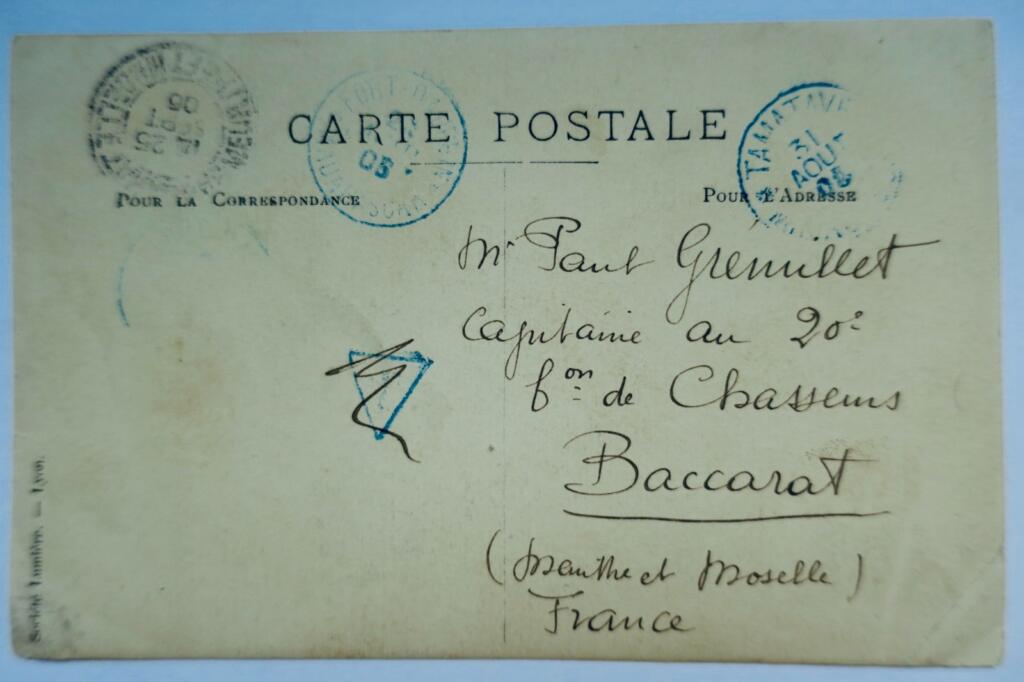 CARTE POSTALE
POUR LA CORRESPONDANCE
POUR L'ADRESSE
TAMATAVE
31
AOUT
05
05
Mr Paul Grémillet
Capitaine au 20e
bon de Chasseurs
Baccarat
(Meurthe et Moselle)
France
Société Lumière. — Lyon.